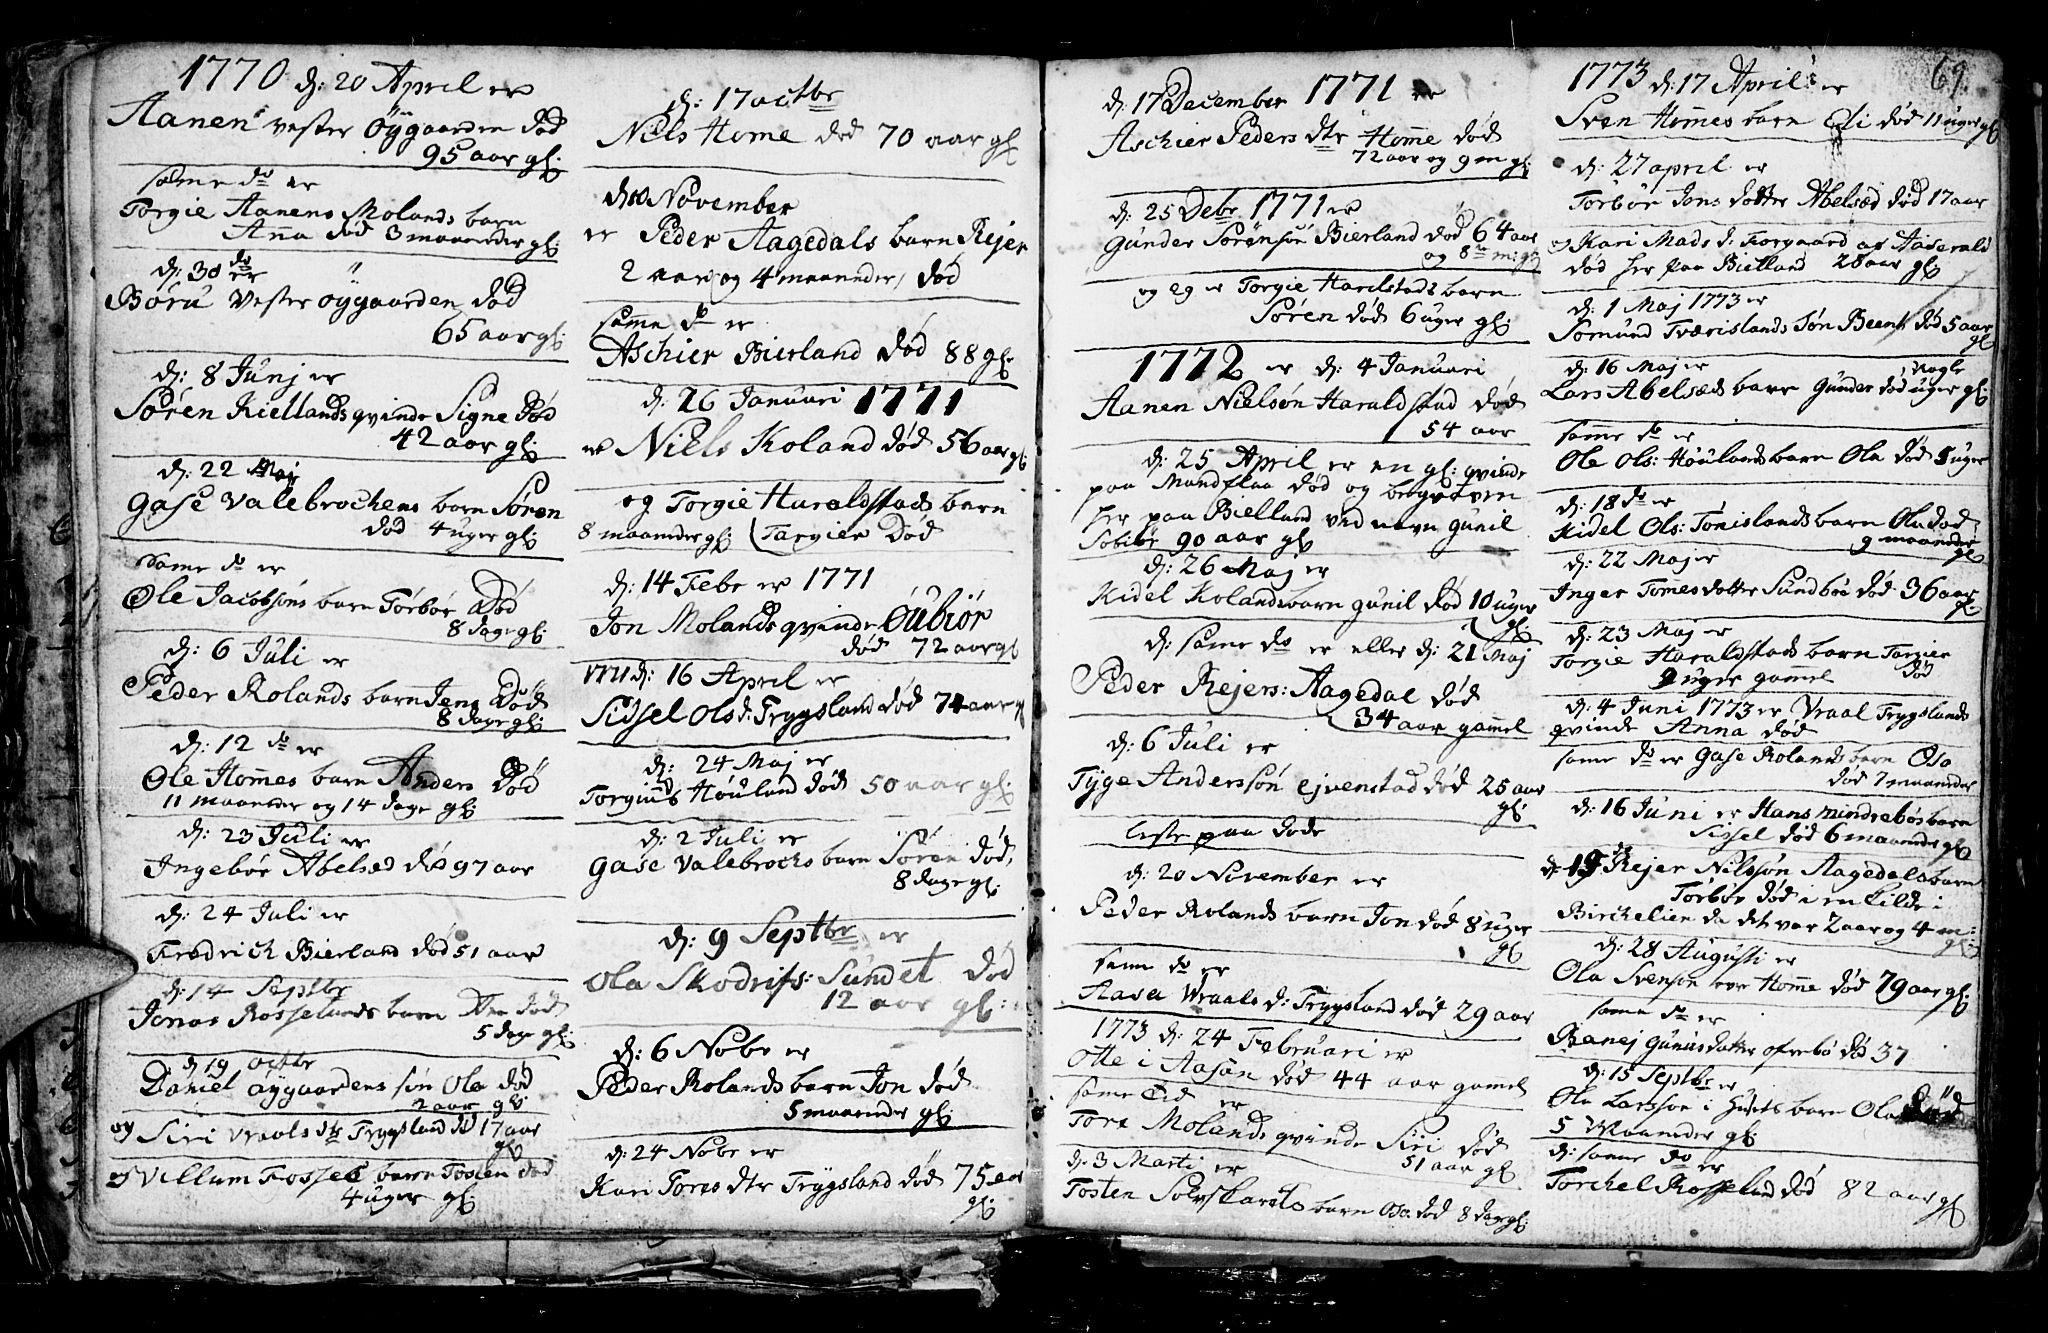 1770 d: 20 April er
Aanen vester Öygaarden død
95 aar gl:
same do er
Torgie Aanens Molands barn
Anna død 3 maaneder gl:
d: 30 do er
Børu vester öygaarden død
65 aar gl:
d: 8 Junj er
Søren Kiellands qvinde Signe død
42 aar gl:
d: 22 Maj
Gase Valebrochens barn Søren
død 4 uger gl:
same do er
Ole Jacobsøns barn Torbør Død
8 dage gl:
d: 6 Juli er
Peder Rolands barn Jens Død
8 dage gl:
d: 12 do er
Ole Hommes barn Anders Død
11 maaneder og 14 dage gl:
d: 23 Juli er
Ingebør Abelsæd død 97 aar
d: 24 Juli er
Fredrich Bierland død 51 aar
d: 14 Septbr
Jonas Rosselands barn død
5 dage gl:
d 19 octbr
Daniel öygaardens søn Ola død
2 aar gl:
og Siri Vraals dtr Trygsland død 17 aar
gl:
og Villum Fosses barn Tosten død
4 uger gl:
d: 17 octbr
Niels Home død 70 aar gl:
d 10 November
er Peder Aagedals barn Rejer
2 aar og 4 maaneder, død
same do er
Aschier Bierland død 88 gl:
d: 26 Januari 1771
er Niels Koland død 56 aar gl:
og Torgie Haraldstads barn
8 maaneder gl: Targier Død
d: 14 Febr er 1771
Jon Molands qvinde Gubiør
død 72 aar gl
1771 d: 16 April er
Sidsel Ols d: Trygsland død 74 aar gl
d: 24 Maj er
Torgius Høuland død 50 aar gl:
d: 2 Juli er
Gase Valebrochs barn Søren død,
8 dage gl:
d: 9 Septbr er
Ola Skodrifs: Sundet død
12 aar gl:
d: 6 Nobr er
Peder Rolands barn Jon død
5 maaneder gl:
d: 24 Nobr er
Kari Tores dtr Trygsland død 75 aar
gl:
69.
d: 17 December 1771 er
Aschier Peders dtr Homme død
72 aar og 9 m gl:
d: 25 Debr 1771 er
Gunder Sørensøn Bierland død 64 aar
og 8 m: gl:
og eg er Torgie Harilstads barn
Søren død 6 uger gl:
1772 er d: 4 Januari
Aanen Nielsøn Haraldstad død
54 aar
d: 25 April er en gl: qvinde
paa Mandflaa død og begraven
her paa Bielland ved navn Gunil
90 aar gl
d: 26 Maj er
Kidel Kolands barn gunil død 10 uger
gl:
d: same do er eller d: 21 Maj
Peder Rejers: Aagedal død
34 aar gammel
d: 6 Juli er
Tyge Anderssøn ejvenstad død 25 aar
gl:
liste paa døde
d: 20 November er
Peder Rolands barn Jon død 8 uger
gl
same do er
Aasa Vraals d: Trygsland død 29 aar
1773 d: 24 Februari er
Otte i Aasøn død 44 aar gamel
same Tid er
Tore Molands qvinde Siri død
51 aar gl
d: 3 Marti er
Tosten Solvskards barn Osa død 8 dage gl:
1773 d: 17 April er
Sven Hommes barn Eli død 11 uger gl
d: 27 april er
Torbør Jons datter Abelsæd død 17 aar
og Kari Mads d: Torgaard af Aaserald
død her paa Bielland 28 aar gl
d: 1 Maj 1773 er
Tomund Tværislands søn Beent død 5 aar
gl
d: 16 Maj er
Lars Abelsæds barn Gunder død nogle uger gl:
samme do er
Ole Ols: Høulands barn Ola død 5 uger
d: 18 do er
Kidel Ols: Tønislands barn Ola død
9 maaneder
gl
d: 22 Maj er
Inger Tomesdatter Sundbøe død 36 aar
gl:
d: 23 Maj er
Torgie Haraldstads barn Targier
9 uger gammel død
d: 4 Juni 1773 er Vraal Trygslands
qvinde Anna død
same do er Gase Rolands barn Osa
død 7 maaneder
d: 16 Juni er Hans mindrebøs barn
Sissel død 6 maaneder gl
d: 19 Rejer Nilssøn Aagedals barn
Torbør død i en Kilde i
Birchelien da det var 2 aar og 4 m:
gl:
d: 28 Augusti er
Ola Svensøn Homme død 79 aar gl:
same do er
Ranej Gunusdatter ofrebø død 37
d: 15 Septbr er
Ola Larssøn i Husets barn Ola død
5 Maaneder gl
d: samme do er
Torchel Rosseland død 82 aar gl